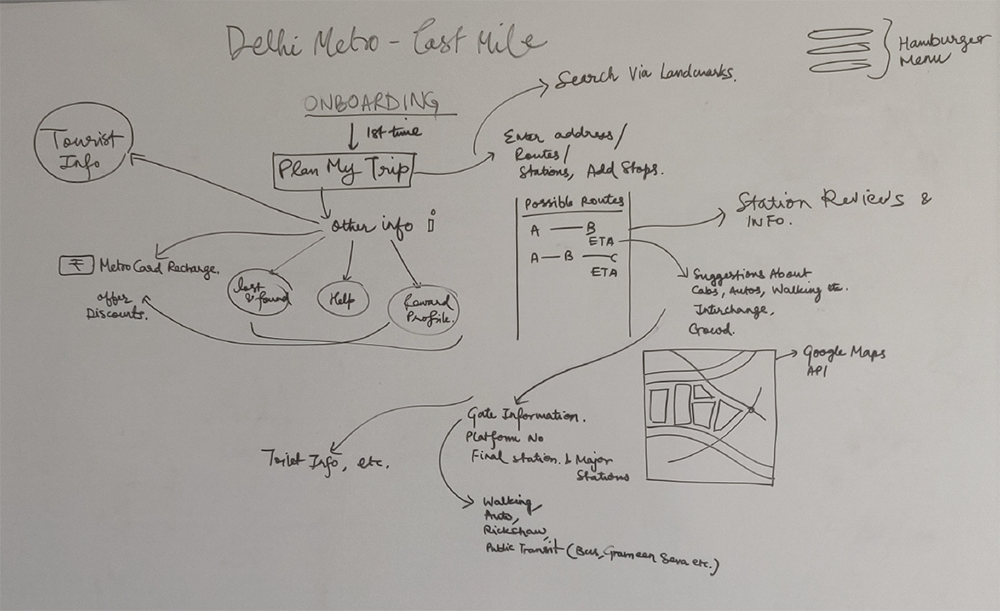 Delhi Metro - Last Mile
Hamburger
Menu
ONBOARDING
1st time
Plan My Trip
Search Via Landmarks.
Enter address/
Routes/
Stations, Add Stops.
Tourist
Info
Other info i
₹ Metro Card Recharge.
offer
Discounts.
lost
& found
Help
Reward
Profile.
Possible Routes
A — B
ETA
A — B — C
ETA
Station Reviews &
INFO.
Suggestions About
Cabs, Autos, Walking etc.
Interchange,
Crowd.
Google Maps
API
Gate Information.
Platform No
Final station. & Major
Stations
Toilet Info, etc.
Walking,
Auto,
Rickshaw,
Public Transit (Bus, Grameen Seva etc.)